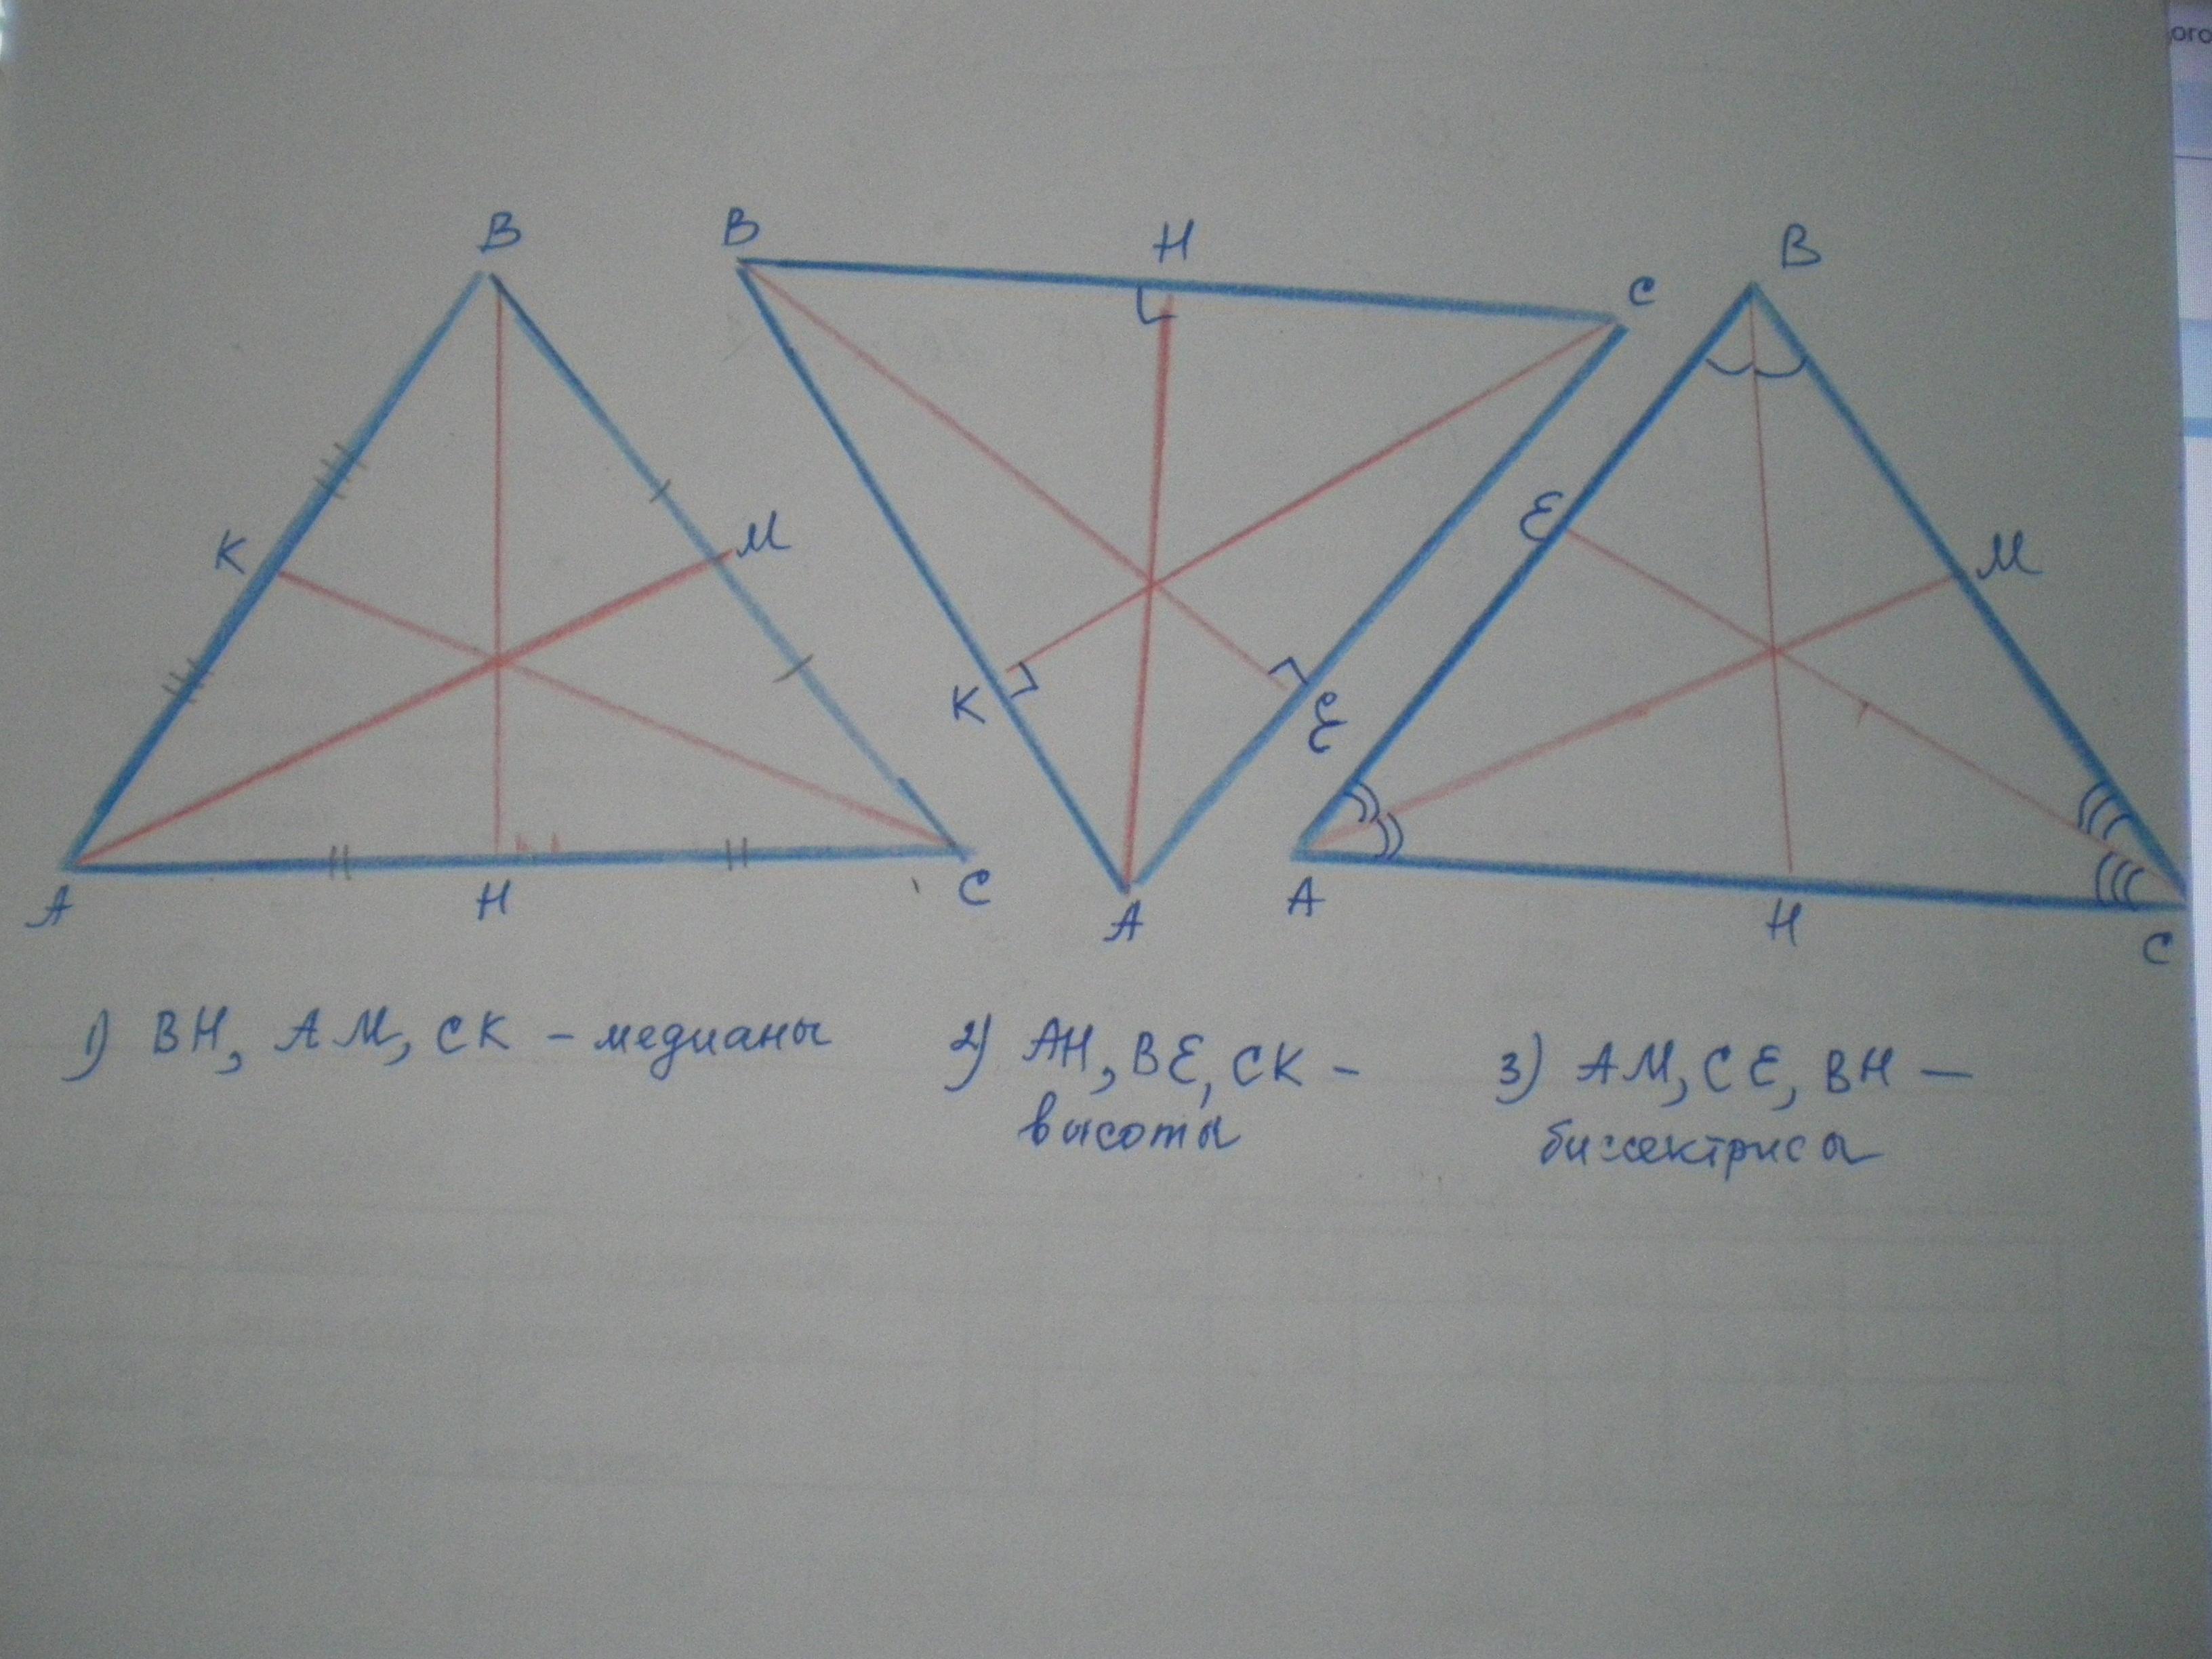 ого
B
B
H
C
B
K
M
E
M
K
E
A
H
C
A
A
H
C
1) BH, AM, CK – медианы
2) AH, BE, CK –
высоты
3) AM, CE, BH –
биссектрисы